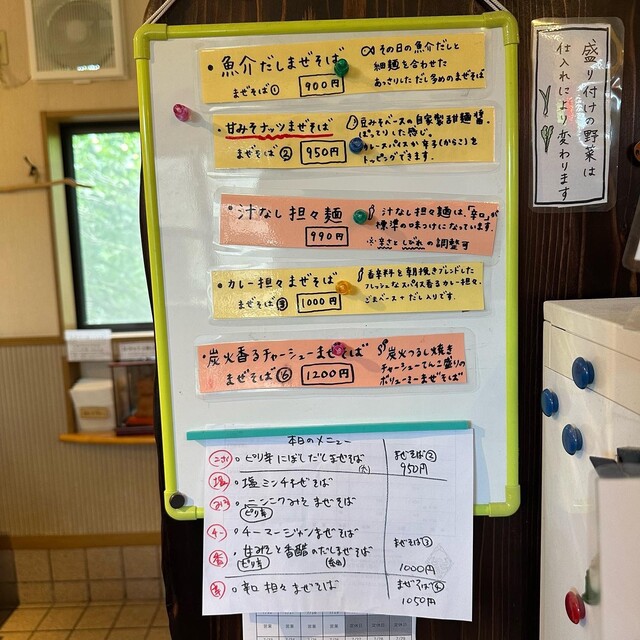 ・魚介だしまぜそば
まぜそば① 900円
その日の魚介だしと
細麺を合わせた
あっさりしただし多めのまぜそば
・甘みそナッツまぜそば
まぜそば② 950円
豆みそベースの自家製甜麺醤。
カレースパイスか辛子(からこ)を
トッピングできます。
・汁なし担々麺
990円
汁なし担々麺は、「辛口」が
標準の味つけになっています。
※辛さとしびれの調整可
・カレー担々まぜそば
まぜそば③ 1000円
香辛料を朝挽きブレンドした
フレッシュなスパイス香るカレー担々。
ごまベース+だし入りです。
・炭火香るチャーシューまぜそば
まぜそば⑥ 1200円
炭火つるし焼き
チャーシューてんこ盛りの
ボリューミーまぜそば
盛り付けの野菜は
仕入れにより変わります
本日のメニュー
ピリ辛にぼしだしまぜそば
まぜそば②
950円
塩 塩ミンチまぜそば
ニンニクみそまぜそば
ピリ辛
チー チーマージャンまぜそば
香 甘みそと香醋のだしまぜそば
ピリ辛
まぜそば③
1000円
辛口担々まぜそば
まぜそば④
1050円